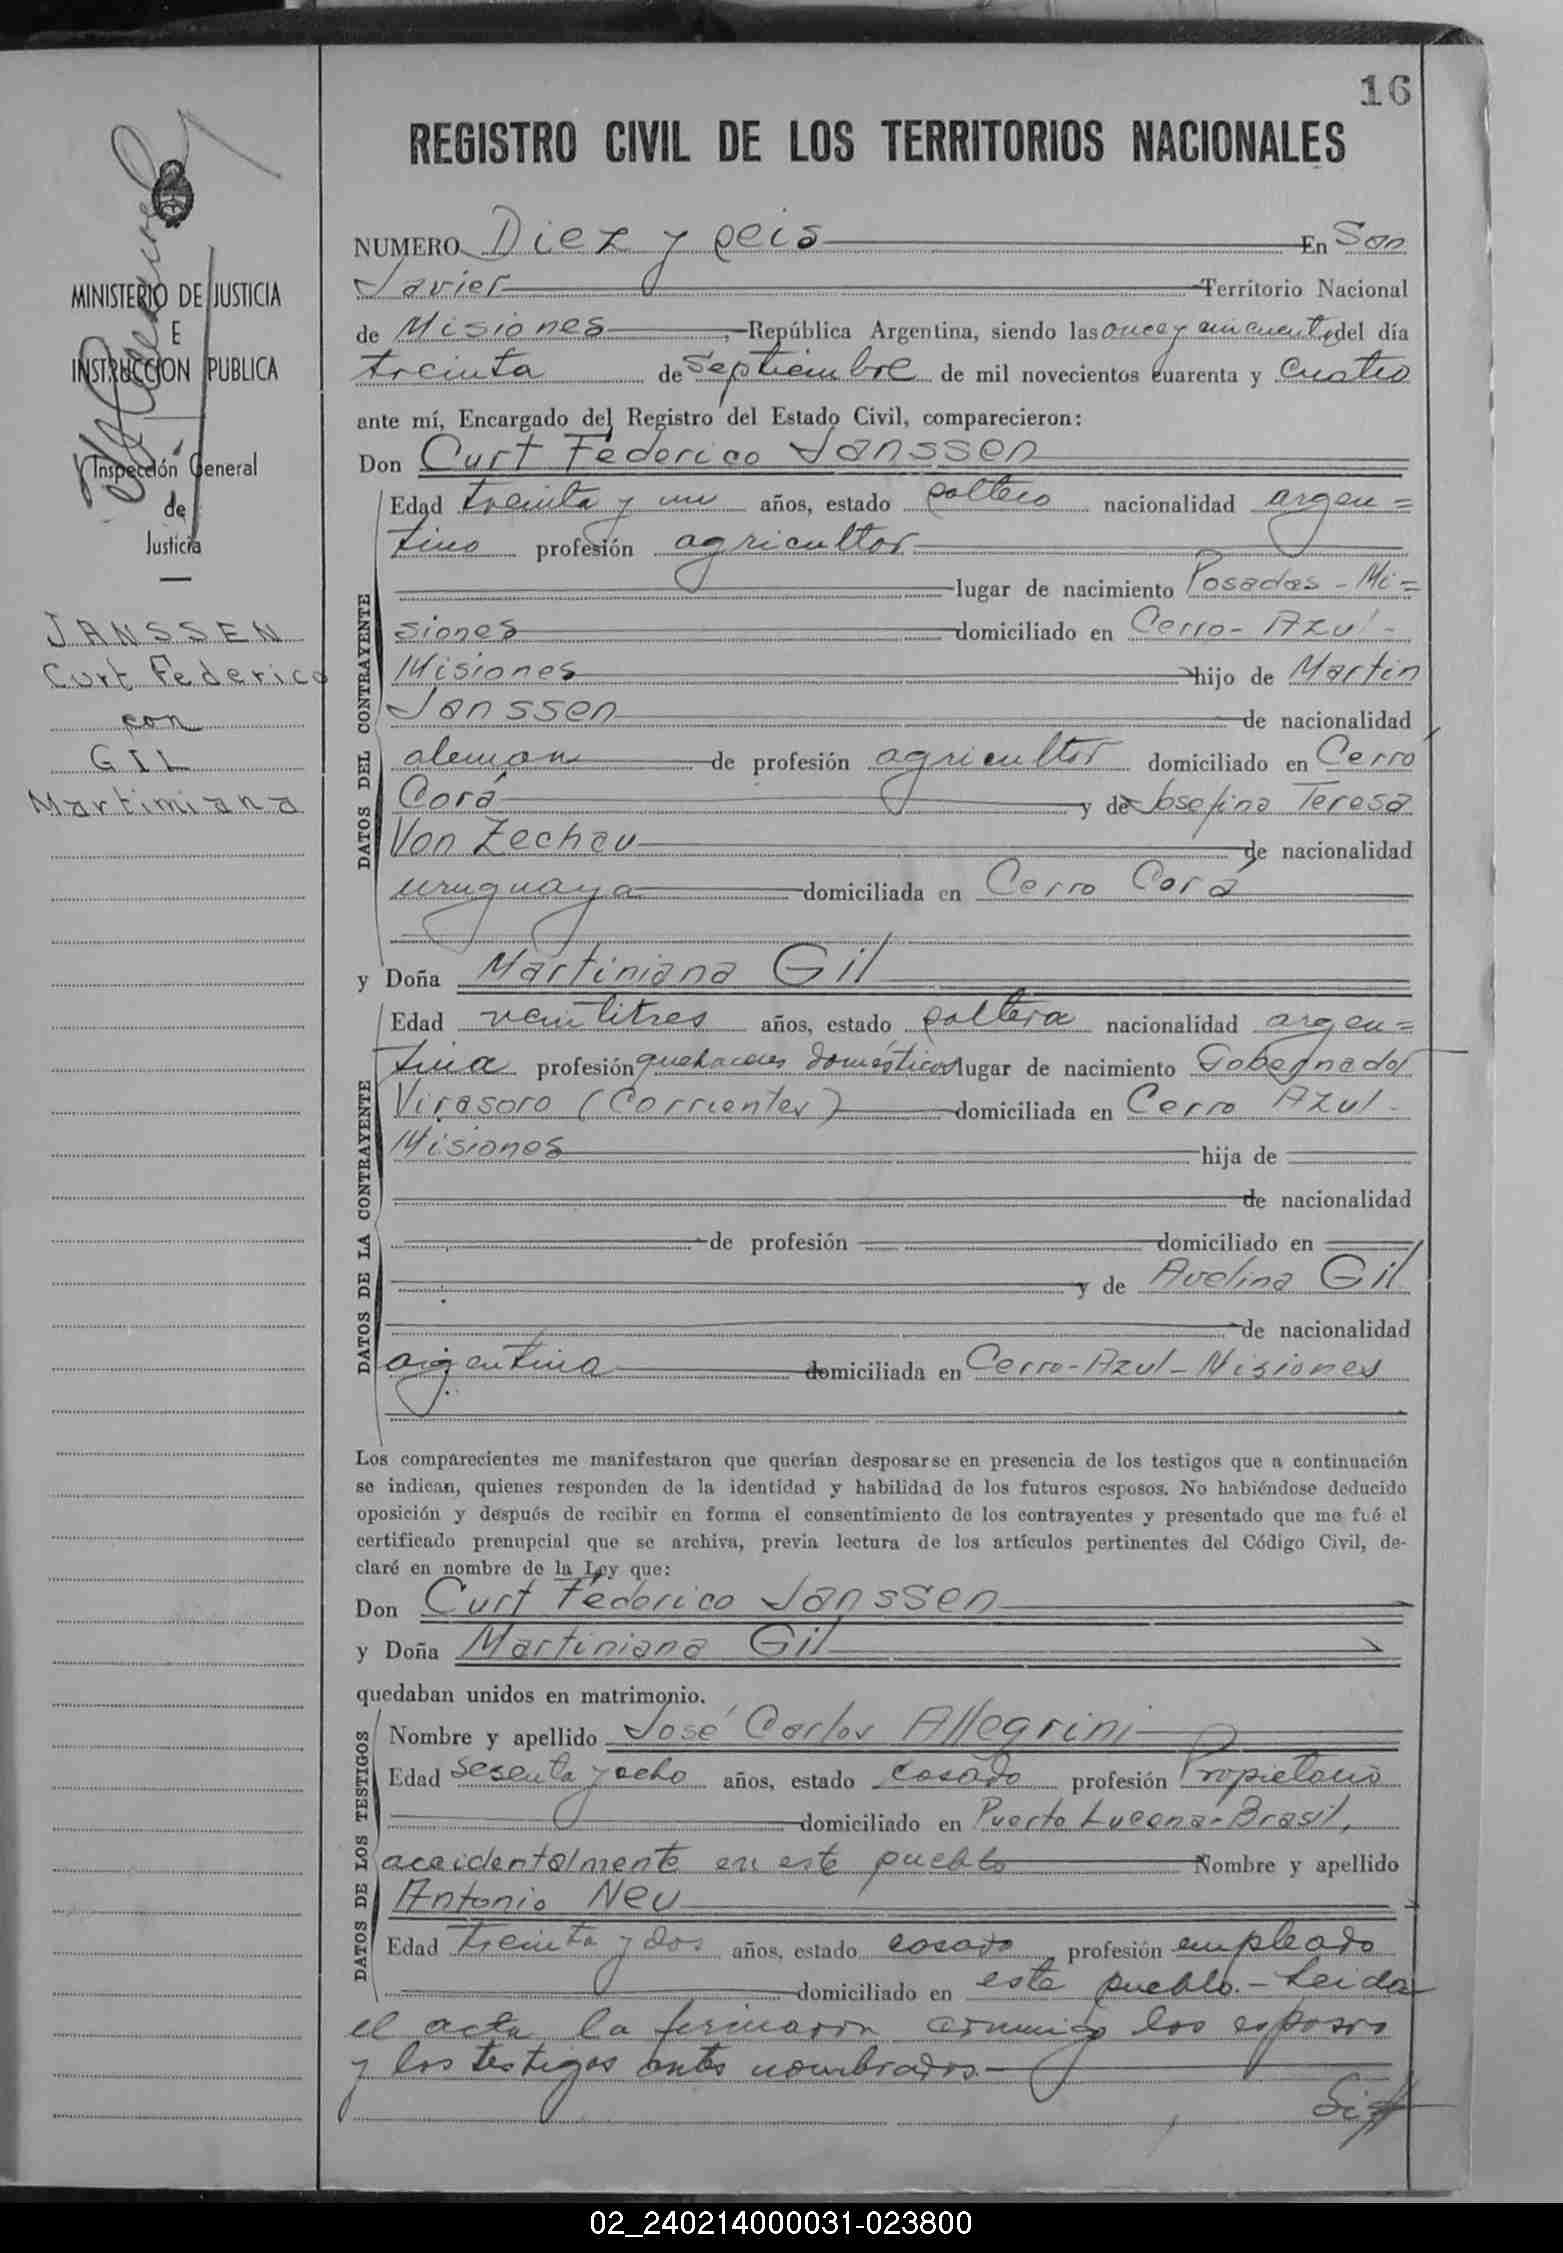 16
REGISTRO CIVIL DE LOS TERRITORIOS NACIONALES
MINISTERIO DE JUSTICIA
E
INSTRUCCION PUBLICA
Inspección General
de
Justicia
JANSSEN
Curt Federico
con
GIL
Martimiana
NUMERO Diez y seis En San
Javier Territorio Nacional
de Misiones, República Argentina, siendo las once y cincuenta del día
treinta de Septiembre de mil novecientos cuarenta y cuatro
ante mí, Encargado del Registro del Estado Civil, comparecieron:
Don Curt Federico Janssen
DATOS DEL CONTRAYENTE
Edad treinta y un años, estado soltero nacionalidad argen=
tino profesión agricultor
lugar de nacimiento Posadas - Mi=
siones domiciliado en Cerro - Azul -
Misiones hijo de Martin
Janssen de nacionalidad
aleman de profesión agricultor domiciliado en Cerro
Corá y de Josefina Teresa
Von Zechau de nacionalidad
uruguaya domiciliada en Cerro Corá
y Doña Martiniana Gil
DATOS DE LA CONTRAYENTE
Edad veintitres años, estado soltera nacionalidad argen=
tina profesión quehaceres domésticos lugar de nacimiento Gobernador
Virasoro (Corrientes) domiciliada en Cerro Azul -
Misiones hija de
de nacionalidad
de profesión domiciliado en
y de Avelina Gil
de nacionalidad
argentina domiciliada en Cerro-Azul-Misiones
Los comparecientes me manifestaron que querían desposarse en presencia de los testigos que a continuación
se indican, quienes responden de la identidad y habilidad de los futuros esposos. No habiéndose deducido
oposición y después de recibir en forma el consentimiento de los contrayentes y presentado que me fué el
certificado prenupcial que se archiva, previa lectura de los artículos pertinentes del Código Civil, de-
claré en nombre de la Ley que:
Don Curt Federico Janssen
y Doña Martiniana Gil
quedaban unidos en matrimonio.
DATOS DE LOS TESTIGOS
Nombre y apellido José Carlos Allegrini
Edad sesenta y ocho años, estado casado profesión Propietario
domiciliado en Puerto Lucena-Brasil,
accidentalmente en este pueblo Nombre y apellido
Antonio Neu
Edad treinta y dos años, estado casado profesión empleado
domiciliado en este pueblo. - Leida
el acta la firmaron conmigo los esposos
y los testigos antes nombrados. -
02_240214000031-023800